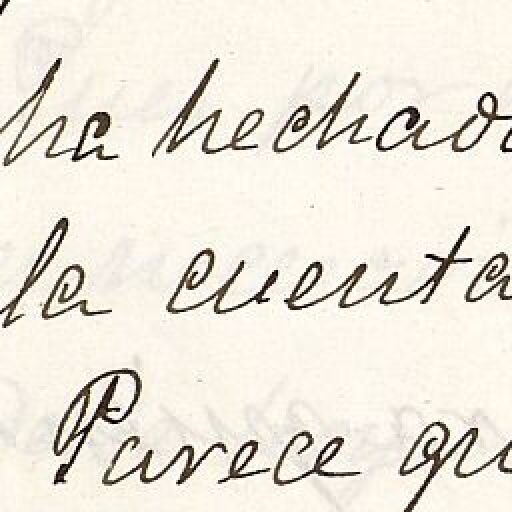 ha hechado
la cuenta
Parece qu